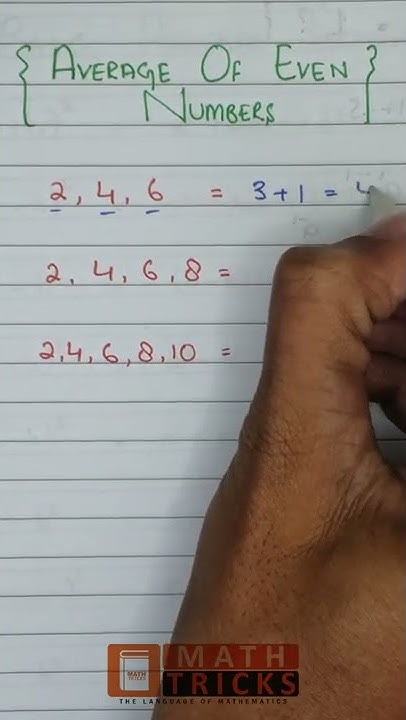 { AVERAGE OF EVEN }
[ NUMBERS ]
2, 4, 6 = 3+1 = 4
2, 4, 6, 8 =
2,4,6,8,10 =
MATH
TRICKS
THE LANGUAGE OF MATHEMATICS